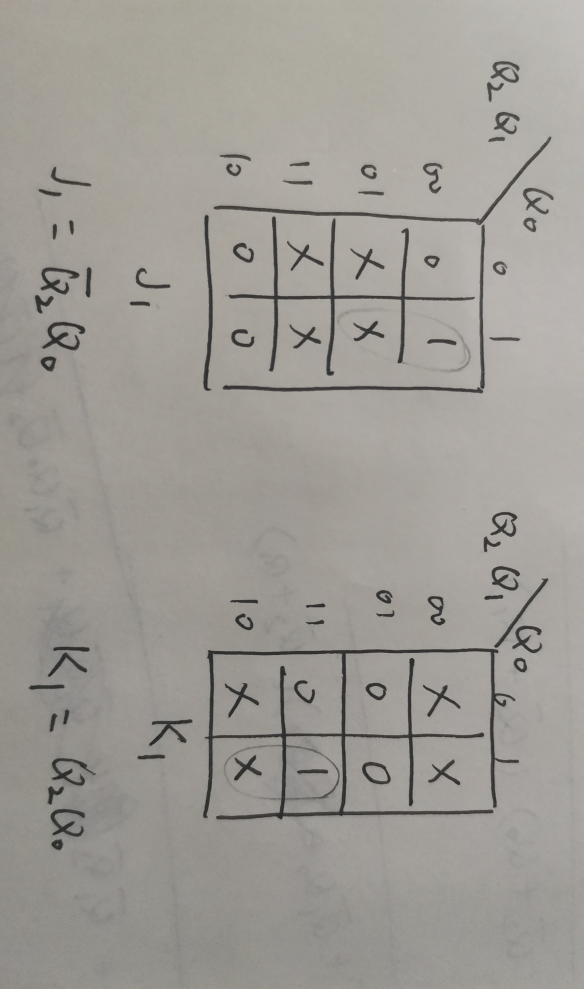 Q₂Q₁ \ Q₀ 0 1
00 0 1
01 X X
11 X X
10 0 0
J₁
J₁ = Q̅₂Q₀
Q₂Q₁ \ Q₀ 0 1
00 X X
01 0 0
11 0 1
10 X X
K₁
K₁ = Q₂Q₀